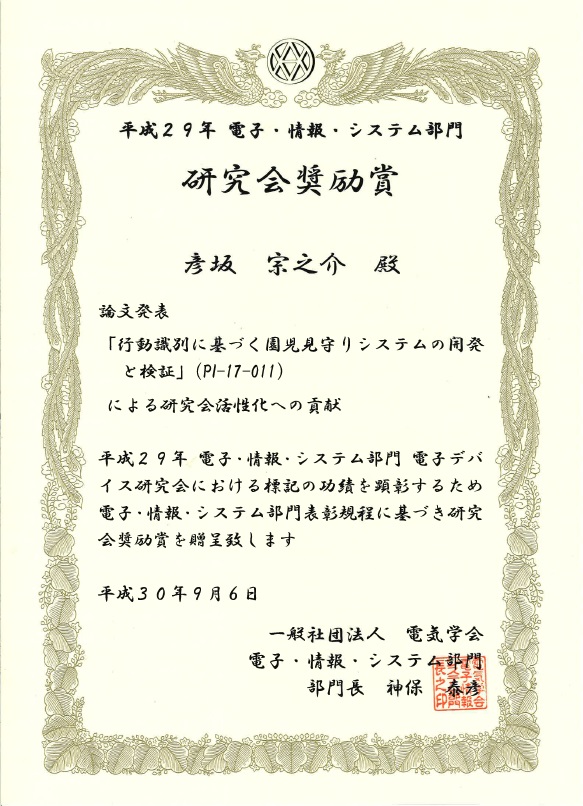 平成29年 電子・情報・システム部門
研究会奨励賞
彦坂 宗之介 殿
論文発表
「行動識別に基づく園児見守りシステムの開発
と検証」(PI-17-011)
による研究会活性化への貢献
平成29年 電子・情報・システム部門 電子デバ
イス研究会における標記の功績を顕彰するため
電子・情報・システム部門表彰規程に基づき研究
会奨励賞を贈呈致します
平成30年9月6日
一般社団法人 電気学会
電子・情報・システム部門
部門長 神保 泰彦